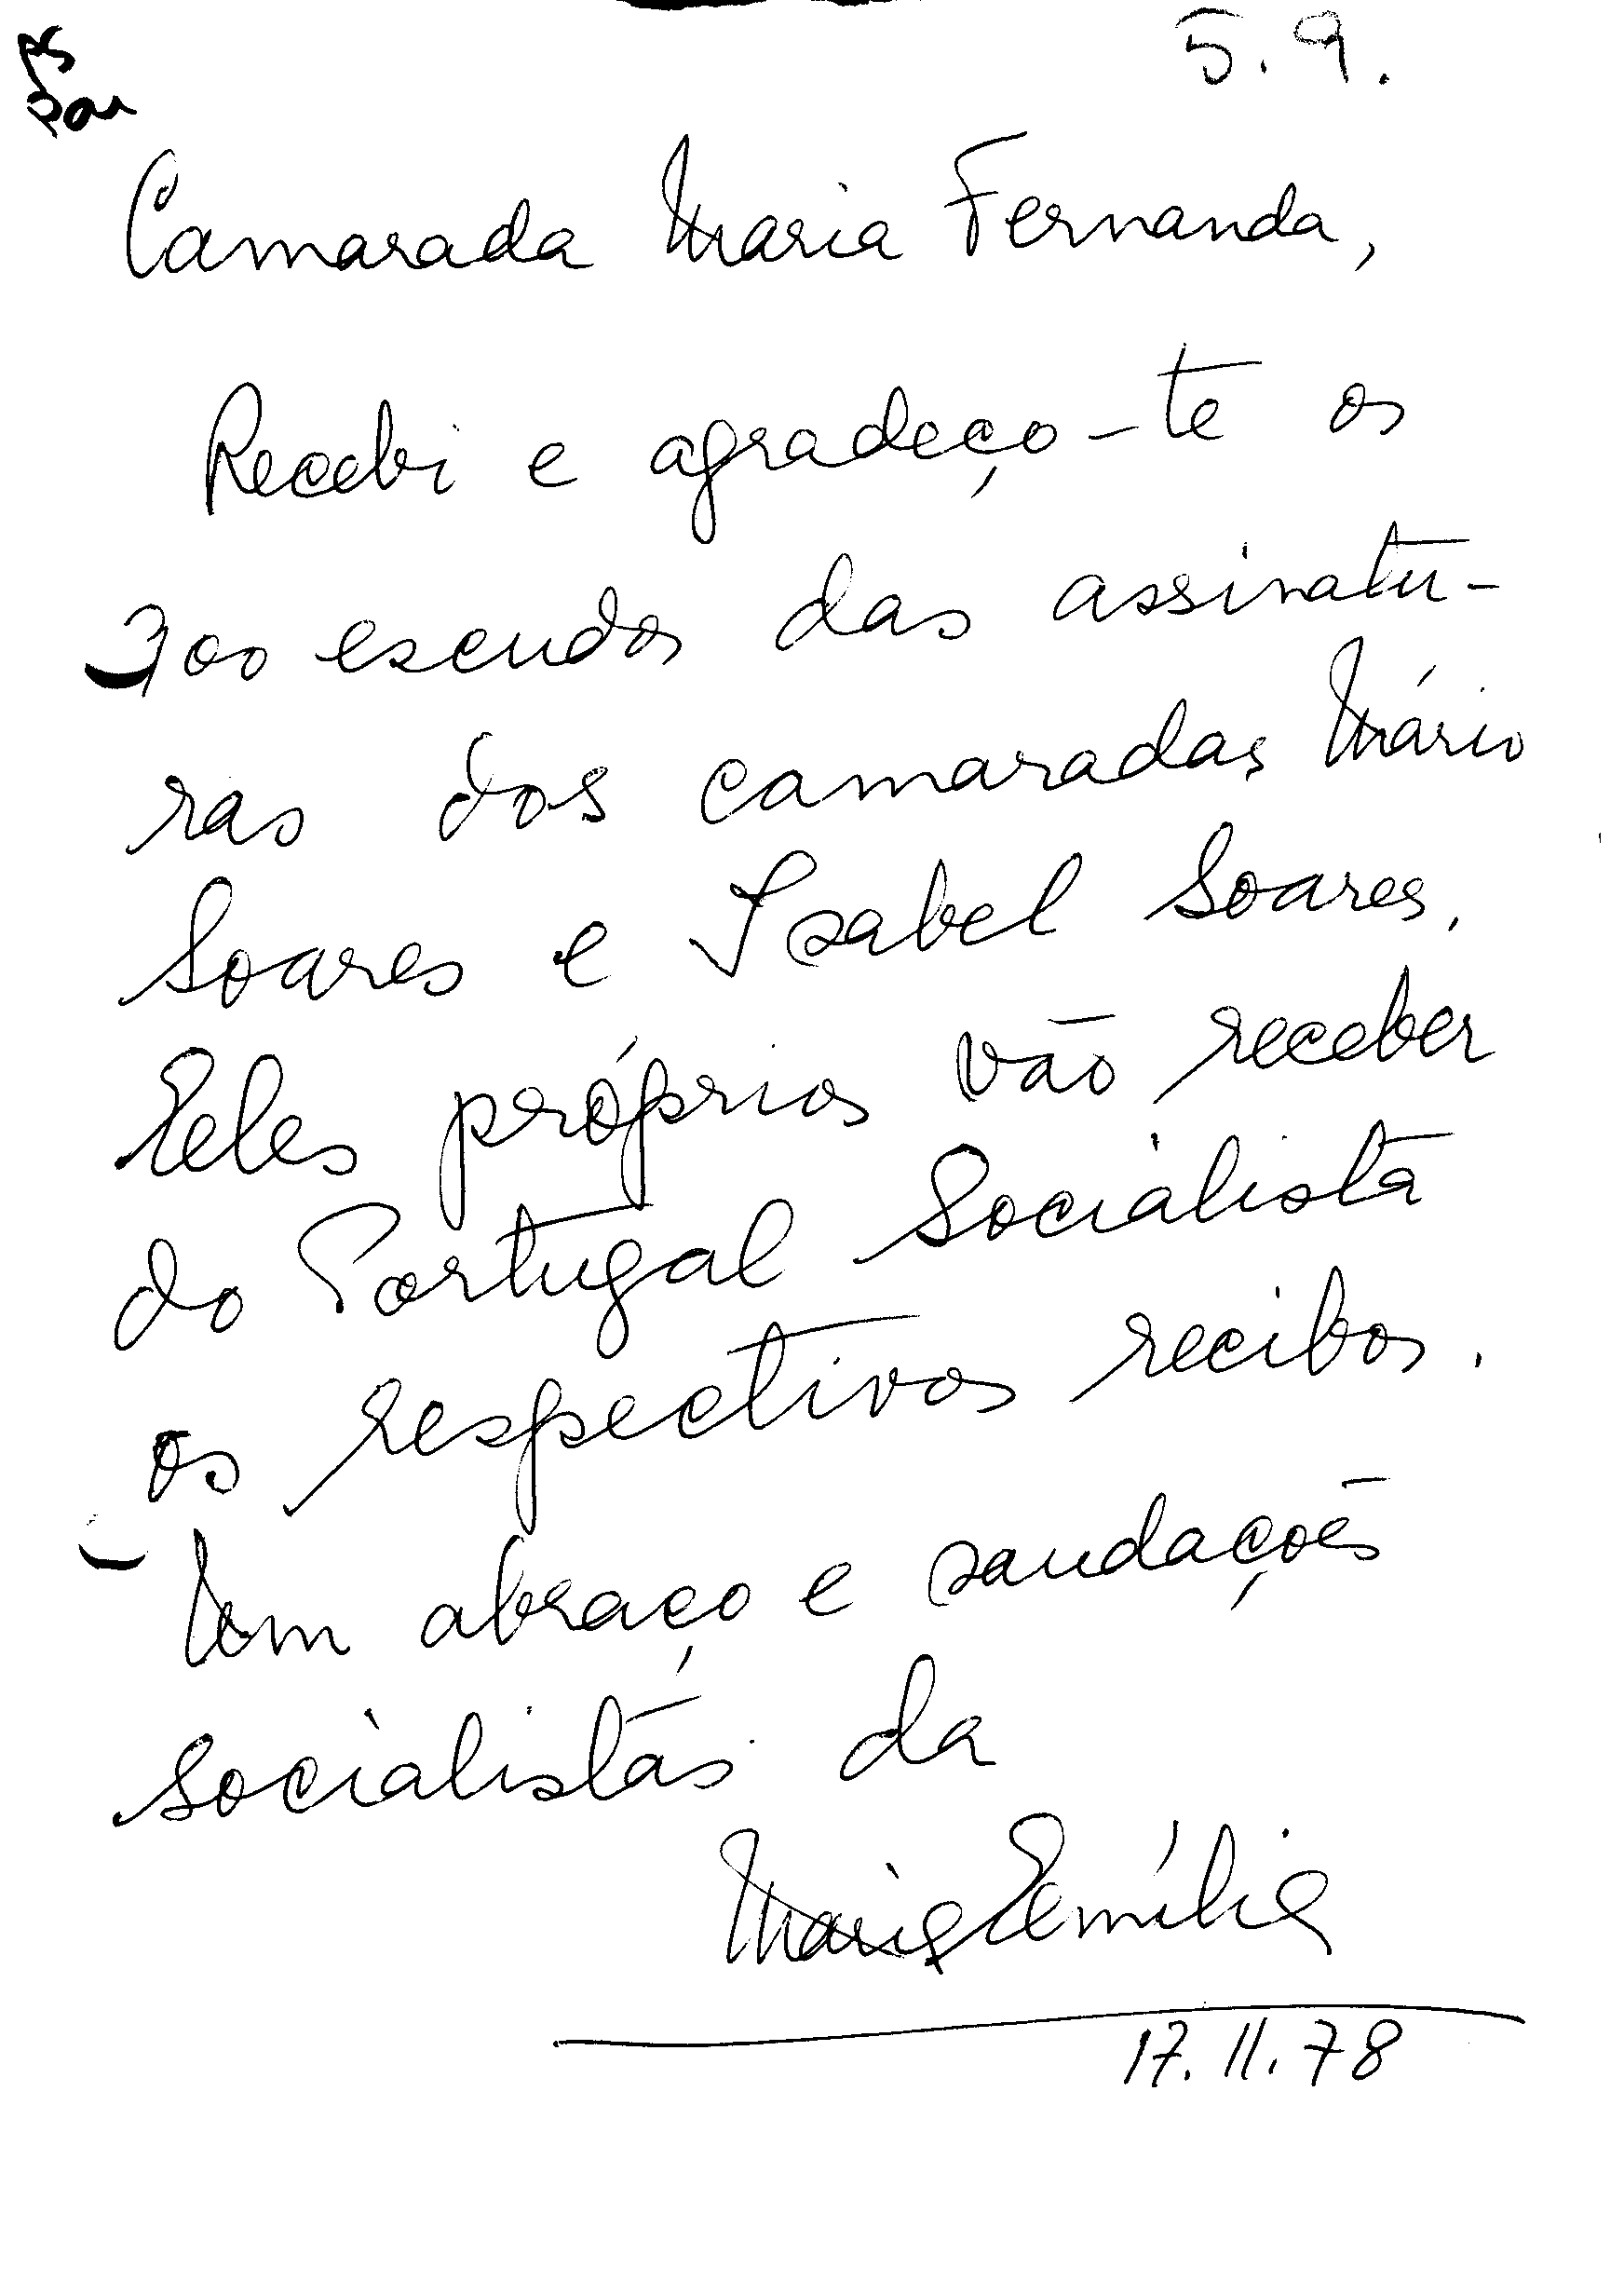 PS
5.9.
Camarada Maria Fernanda,
Recebi e agradeço-te os
700 escudos das assinatu-
ras dos camaradas Mário
Soares e Isabel Soares.
Eles próprios vão receber
do Portugal Socialista
os respectivos recibos.
Um abraço e saudações
socialistas da
Maria Emília
17.11.78